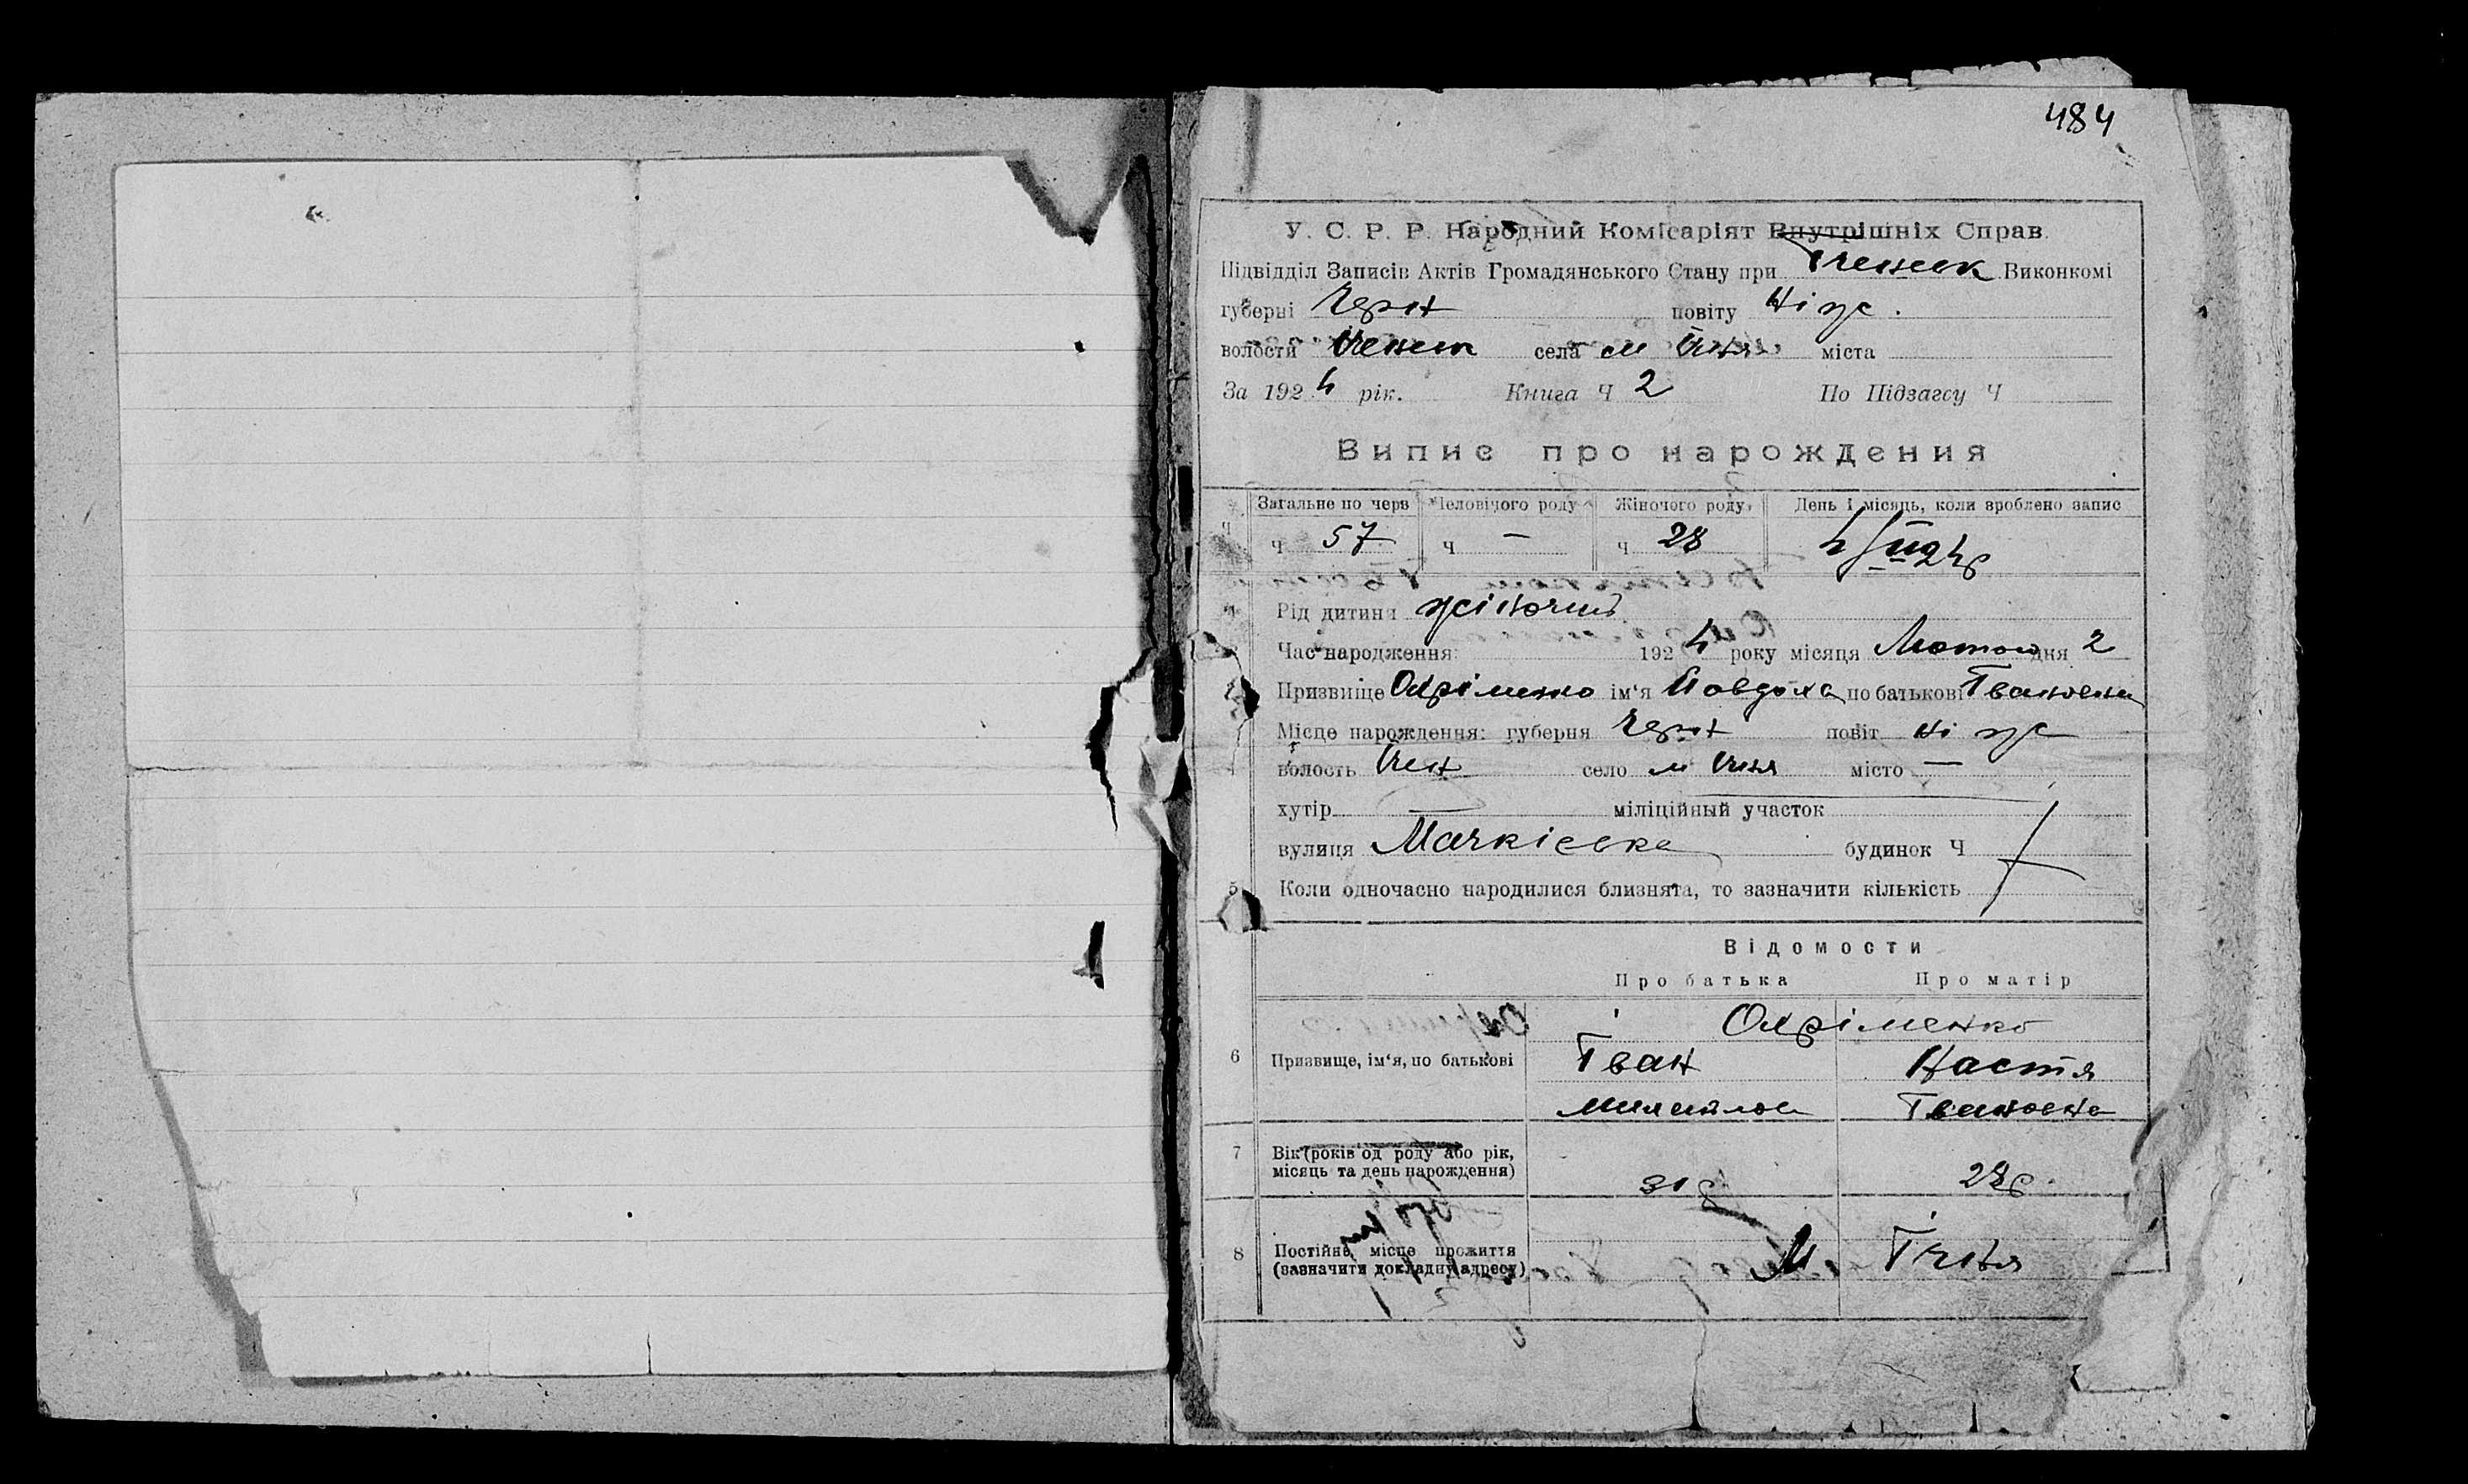 484
У. С. Р. Р. Народний Комісаріят Внутрішніх Справ.
Підвідділ Записів Актів Громадянського Стану при Іченськ Виконкомі
губерні Черн повіту Ніж.
волости Іченськ села м Ічня міста
За 1924 рік. Книга Ч 2 По Підзагсу Ч
Випис про нарождения
Загальне по черв Человічого роду Жіночого роду День і місяць, коли зроблено запис
Ч 57 Ч — Ч 28 4/II 24р
Рід дитини жіночий
Час народження: 1924 року місяця Лютого дня 2
Призвище Охріменко ім'я Явдоха по батькові Івановна
Місце нарождення: губерня Черн повіт Ніж
волость Ічен село м Ічня місто —
хутір — міліційный участок
вулиця Мачкієвка будинок Ч
5 Коли одночасно народилися близнята, то зазначити кількість
Відомости
Про батька Про матір
Охріменко
6 Призвище, ім'я, по батькові Іван Настя
Михайлов Івановна
7 Вік (років од роду або рік,
місяць та день нарождення) 31 р 28р.
8 Постійне місце прожиття
(зазначити докладну адресу) М Ічня